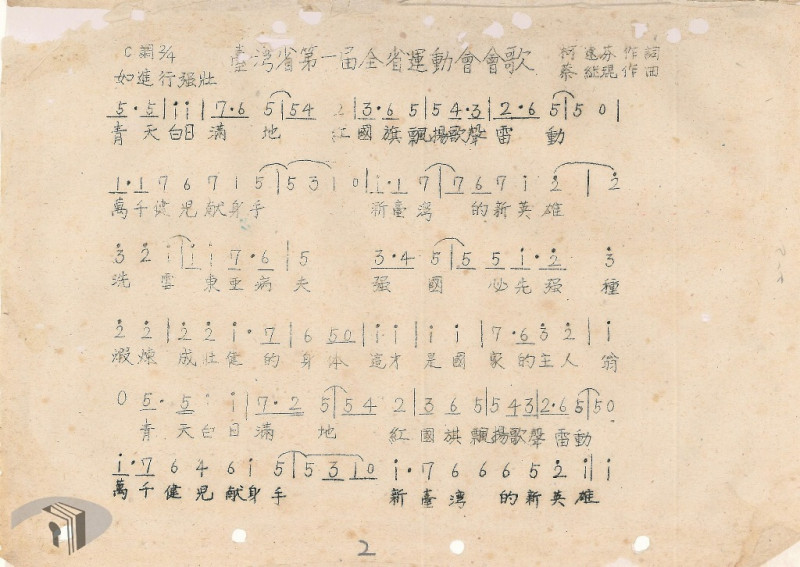 C調 3/4 臺灣省第一届全省運動會會歌 柯遠芬作詞
如進行强壯 蔡继琨作曲
5·5 | i i | 7·6 5 | 5 5 4 2 | 3·6 5 | 5 4·3 | 2·6 5 | 5 0 |
青天白日滿地 紅國旗飄揚歌聲雷動
i·i 7 6 7 i 5 | 5 3 | 0 | i·i 7 | 7 6 7 i 2 | 2
萬千健児献身手 新臺灣的新英雄
3 2 i | i i 7·6 | 5 3·4 5 | 5 5 i·2 3
洗雪東亜病夫 强國必先强種
2 2 | 2 2 i·7 | 6 5 0 | i·i | i i | 7·6 3 2 | i
煅煉成壮健的身体 這才是國家的主人翁
0 5·5 i i | 7·2 5 | 5 4 2 | 3 6 5 | 5 4 3 | 2·6 5 | 5 0
青天白日滿地 紅國旗飄揚歌聲雷動
i·7 6 4 6 i 5 | 5 3 0 i·7 6 6 6 5 2 i | i
萬千健児献身手 新臺灣的新英雄
2